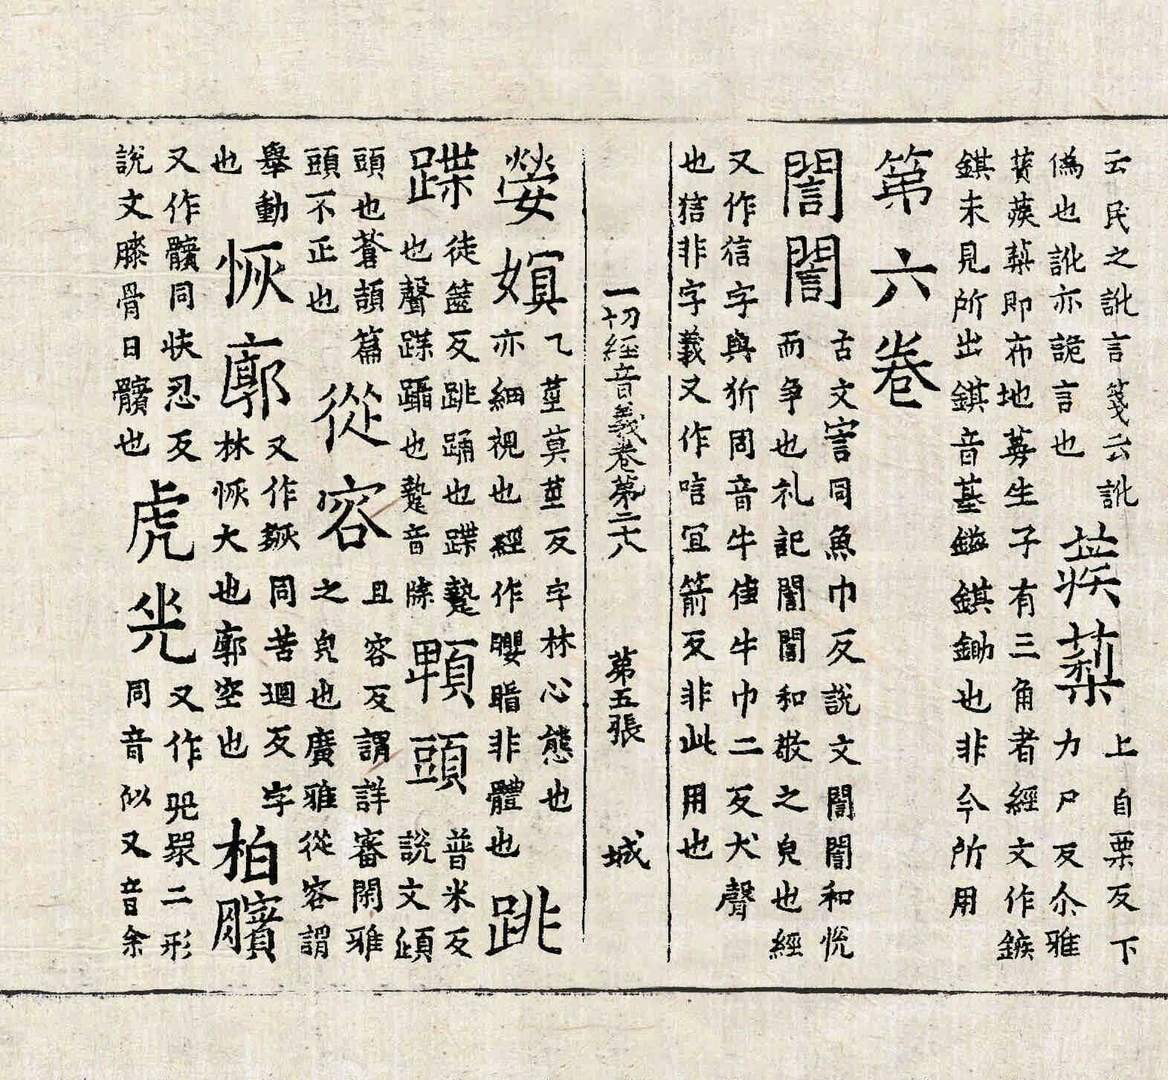 云民之訛言箋云訛
偽也訛亦詭言也
蒺䔧
上自栗反下
力尸反尒雅
薋蒺䔧即布地蔓生子有三角者經文作鏃
錤未見所出錤音基鎡錤鋤也非今所用
第六卷
誾誾
古文訔同魚巾反說文誾誾和悅
而爭也礼記誾誾和敬之皃也經
又作信字與狋同音牛佳牛巾二反犬聲
也狺非字義又作唁宜箭反非此用也
一切經音義卷第二十八 第五張 城
嫈嫇
乙莖莫莖反字林心態也
亦細視也經作矎䁅非體也
跳
蹀
徒篋反跳踊也蹀躠
也聲蹀躡也躠音
頭
普米反
說文傾
頭也蒼頡篇
頭不正也
從容
且容反謂詳審閑雅
之皃也廣雅從容謂
舉動
也
恢廓
又作同苦迴反字
林恢大也廓空也
柏臏
又作髕同扶忍反
說文膝骨曰髕也
虎兕
又作兕二形
同音似又音余